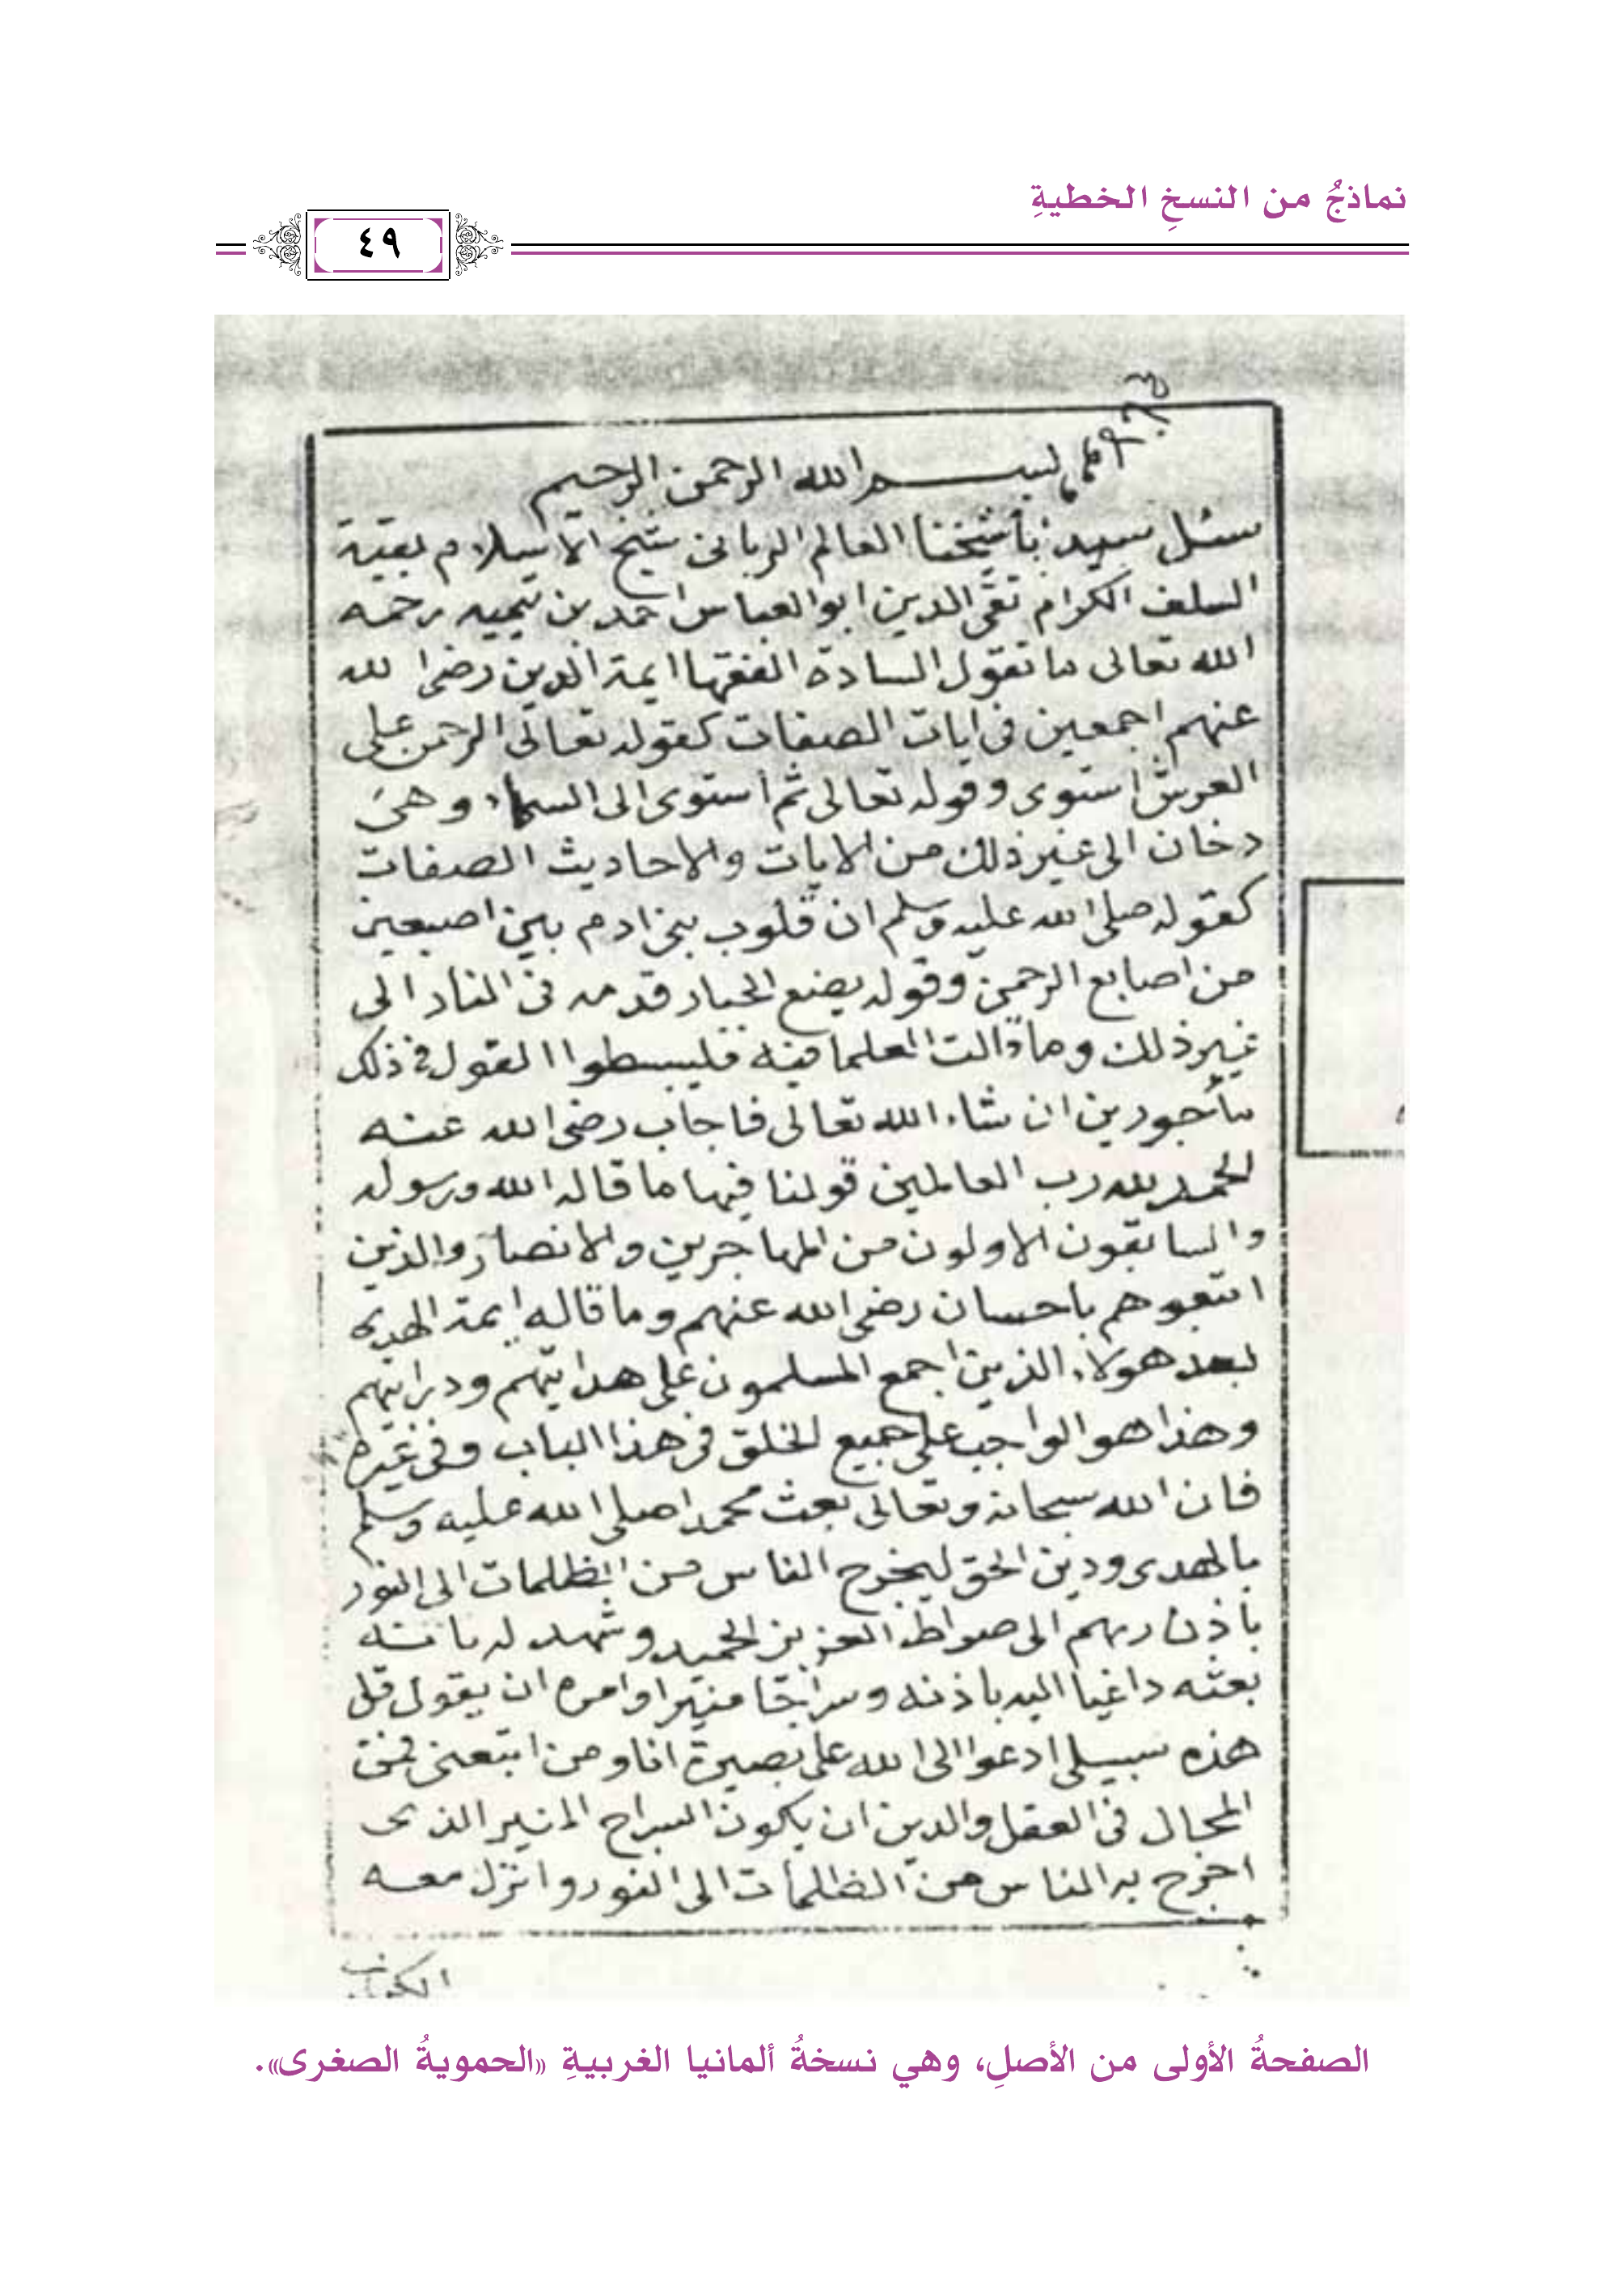 نماذجُ من النسخِ الخطيةِ
٤٩
بسم الله الرحمن الرحيم
سئل سيدنا شيخنا العالم الرباني شيخ الاسلام بقية
السلف الكرام تقي الدين ابو العباس احمد بن تيميه رحمه
الله تعالى ما تقول السادة الفقها ايمة الدين رضي الله
عنهم اجمعين في ايات الصفات كقوله تعالى الرحمن على
العرش استوى وقوله تعالى ثم استوى الى السماء وهي
دخان الى غير ذلك من الايات والاحاديث الصفات
كقوله صلى الله عليه وسلم ان قلوب بني ادم بين اصبعين
من اصابع الرحمن وقوله يضع الجبار قدمه في النار الى
غير ذلك وما قالت العلما فيه فليبسطوا القول في ذلك
مأجورين ان شاء الله تعالى فاجاب رضي الله عنه
الحمد لله رب العالمين قولنا فيها ما قاله الله ورسوله
والسابقون الاولون من المهاجرين والانصار والذين
اتبعوهم باحسان رضي الله عنهم وما قاله ايمة الهدى
بعد هولاء الذين اجمع المسلمون على هدايتهم ودرايتهم
وهذا هو الواجب على جميع الخلق في هذا الباب وفي غيره
فان الله سبحانه وتعالى بعث محمدا صلى الله عليه وسلم
بالهدى ودين الحق ليخرج الناس من الظلمات الى النور
باذن ربهم الى صراط العزيز الحميد وشهد له بانه
بعثه داعيا اليه باذنه وسراجا منيرا وامره ان يقول قل
هذه سبيلي ادعوا الى الله على بصيرة انا ومن اتبعني فمن
المحال في العقل والدين ان يكون السراج المنير الذي
اخرج به الناس من الظلمات الى النور وانزل معه
الكتاب
الصفحةُ الأولى من الأصلِ، وهي نسخةُ ألمانيا الغربيةِ «الحمويةُ الصغرى».